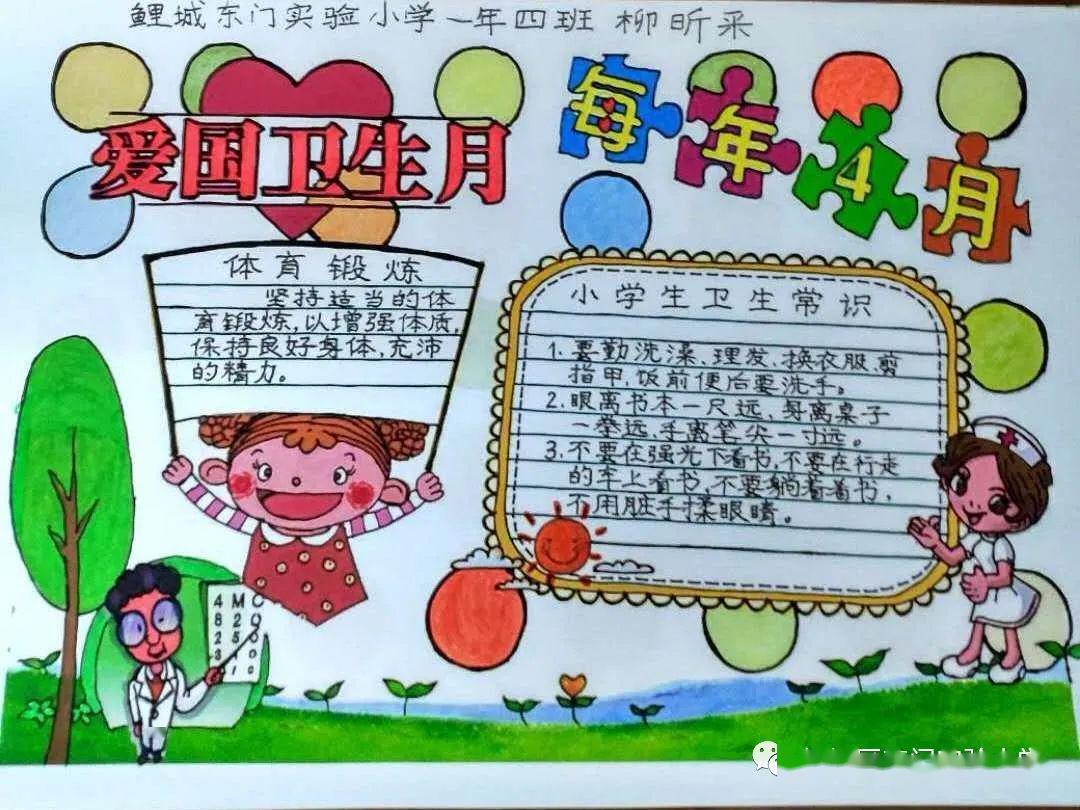 鲤城东门实验小学一年四班 柳昕采
爱国卫生月
每年4月
体育锻炼
坚持适当的体
育锻炼,以增强体质,
保持良好身体,充沛
的精力。
小学生卫生常识
1. 要勤洗澡、理发、换衣服、剪
指甲,饭前便后要洗手。
2. 眼离书本一尺远、身离桌子
一拳远、手离笔尖一寸远。
3. 不要在强光下看书,不要在行走
的车上看书,不要躺着看书,
不用脏手揉眼睛。
4 M C
8 2 0
2 5
3